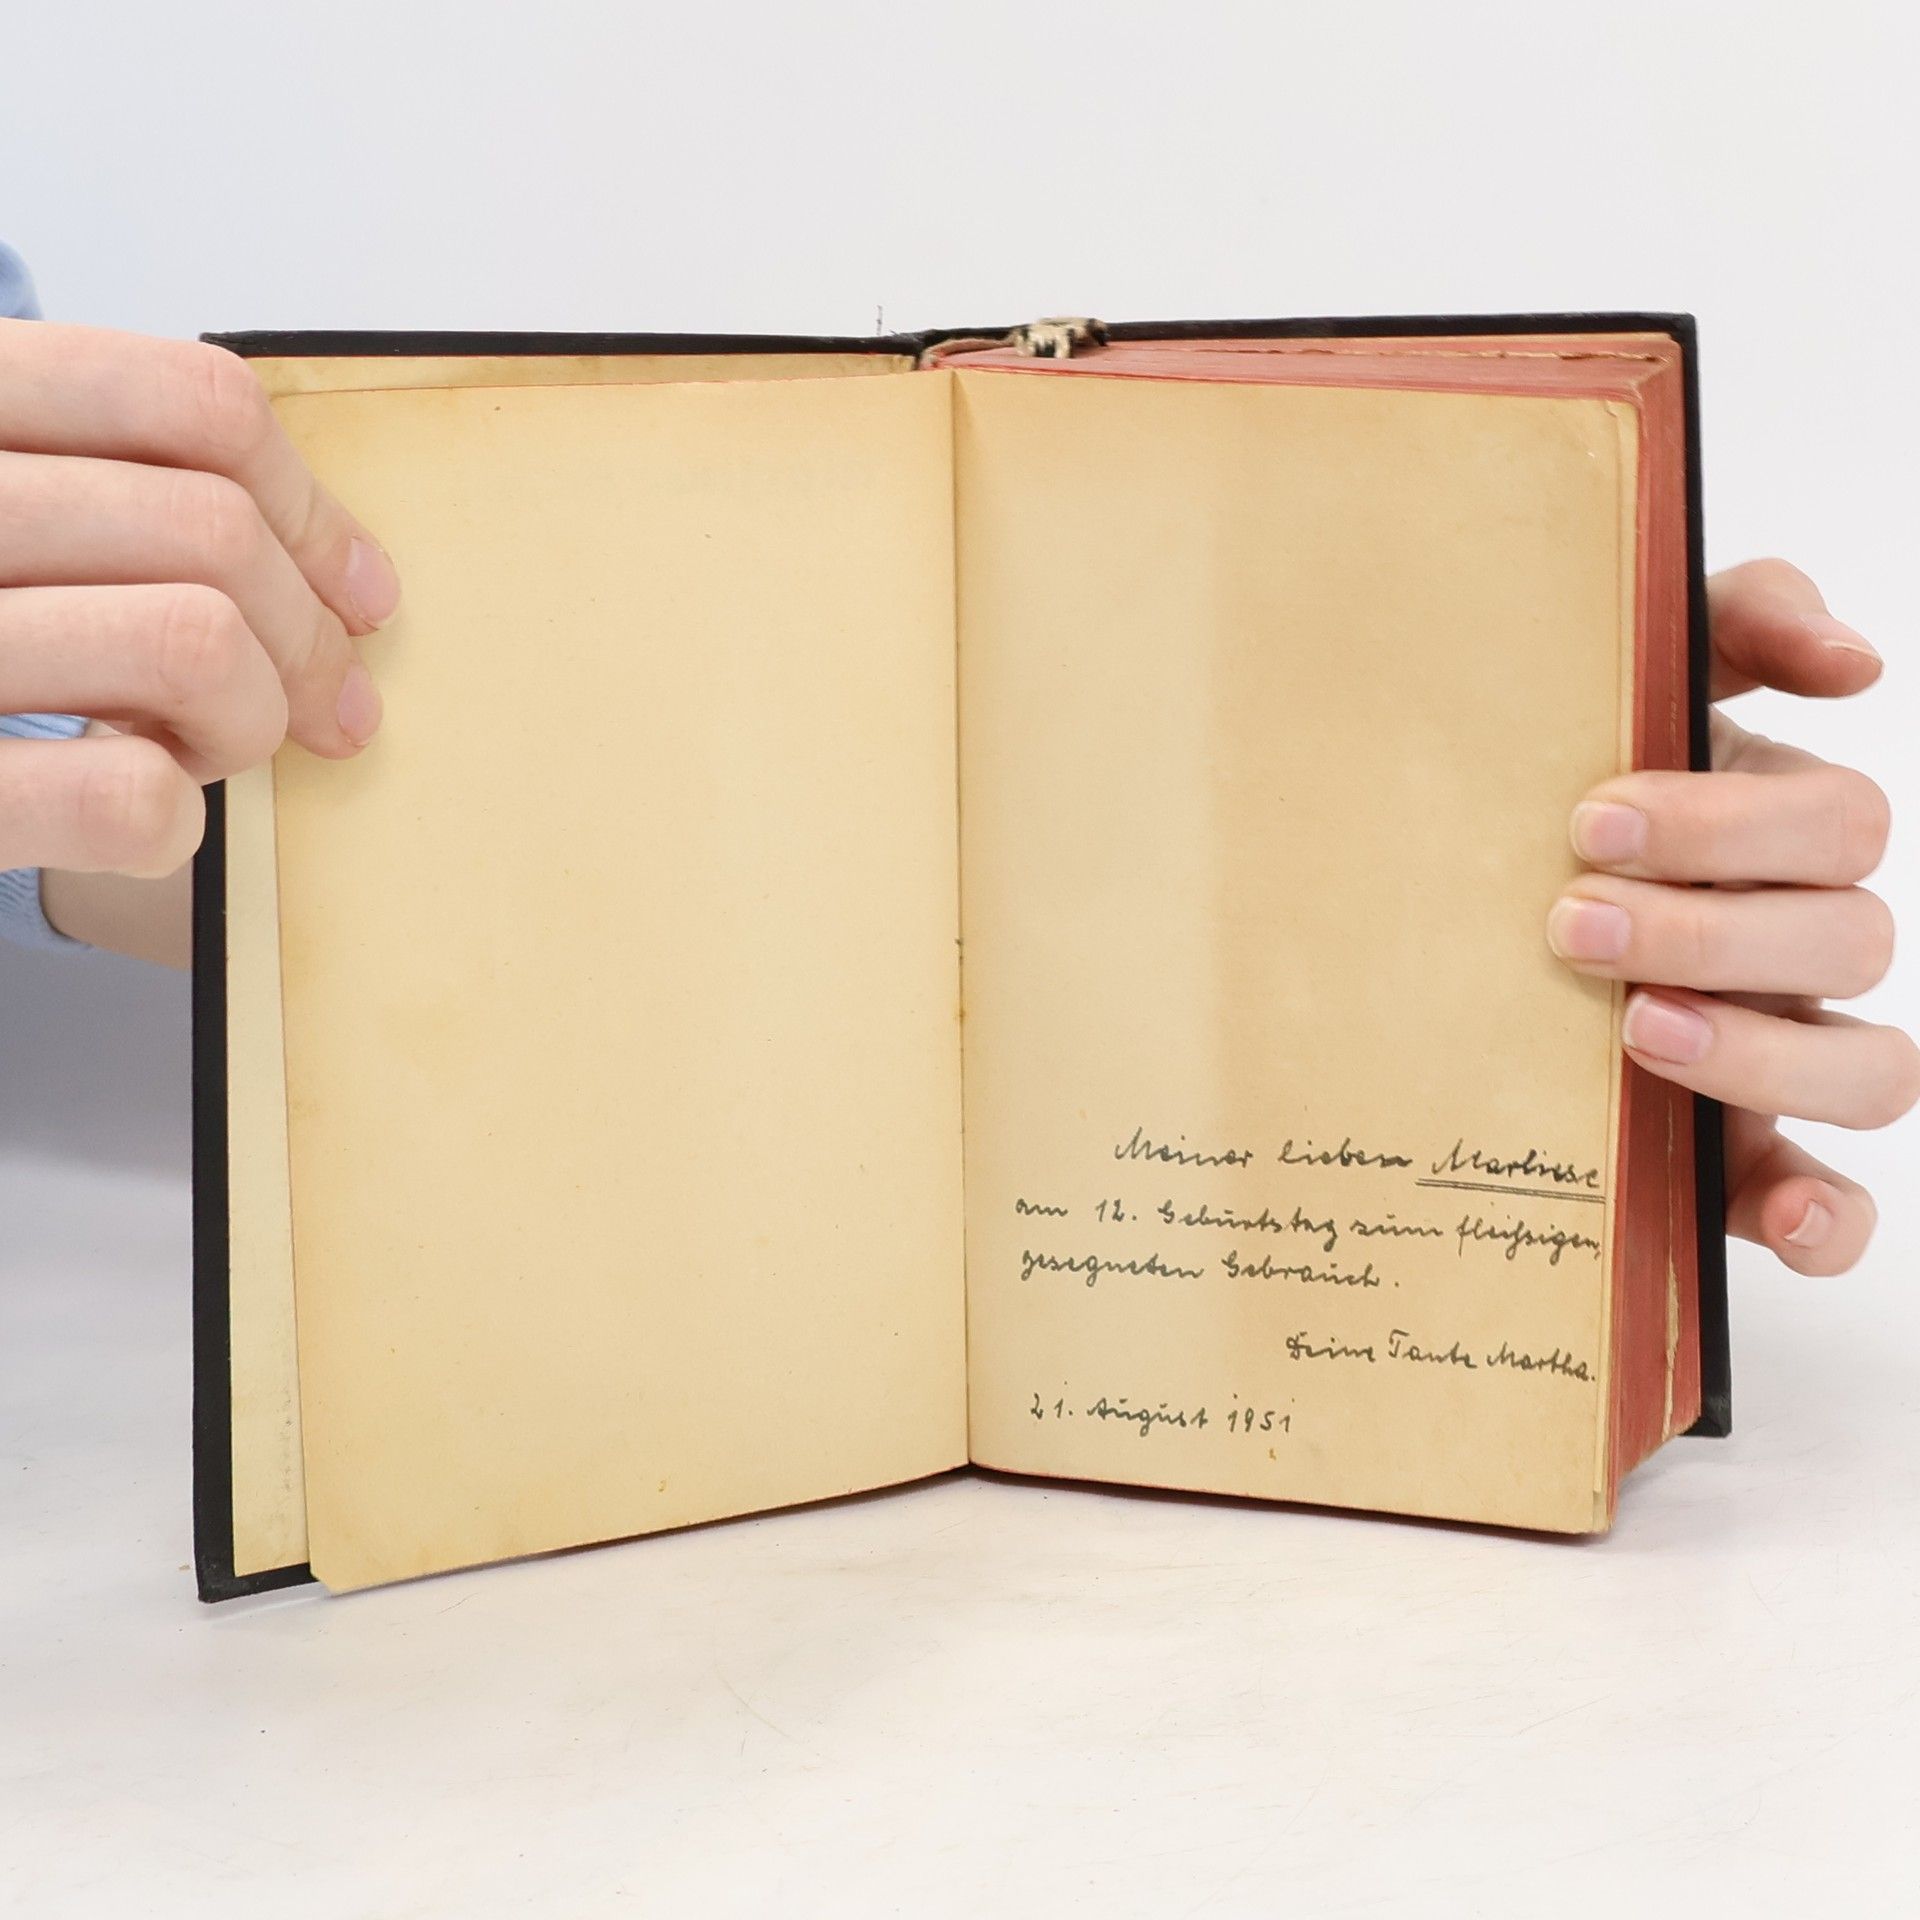 Meiner lieben Marliese
am 12. Geburtstag zum fleißigen,
gesegneten Gebrauch.
Deine Tante Martha.
21. August 1951